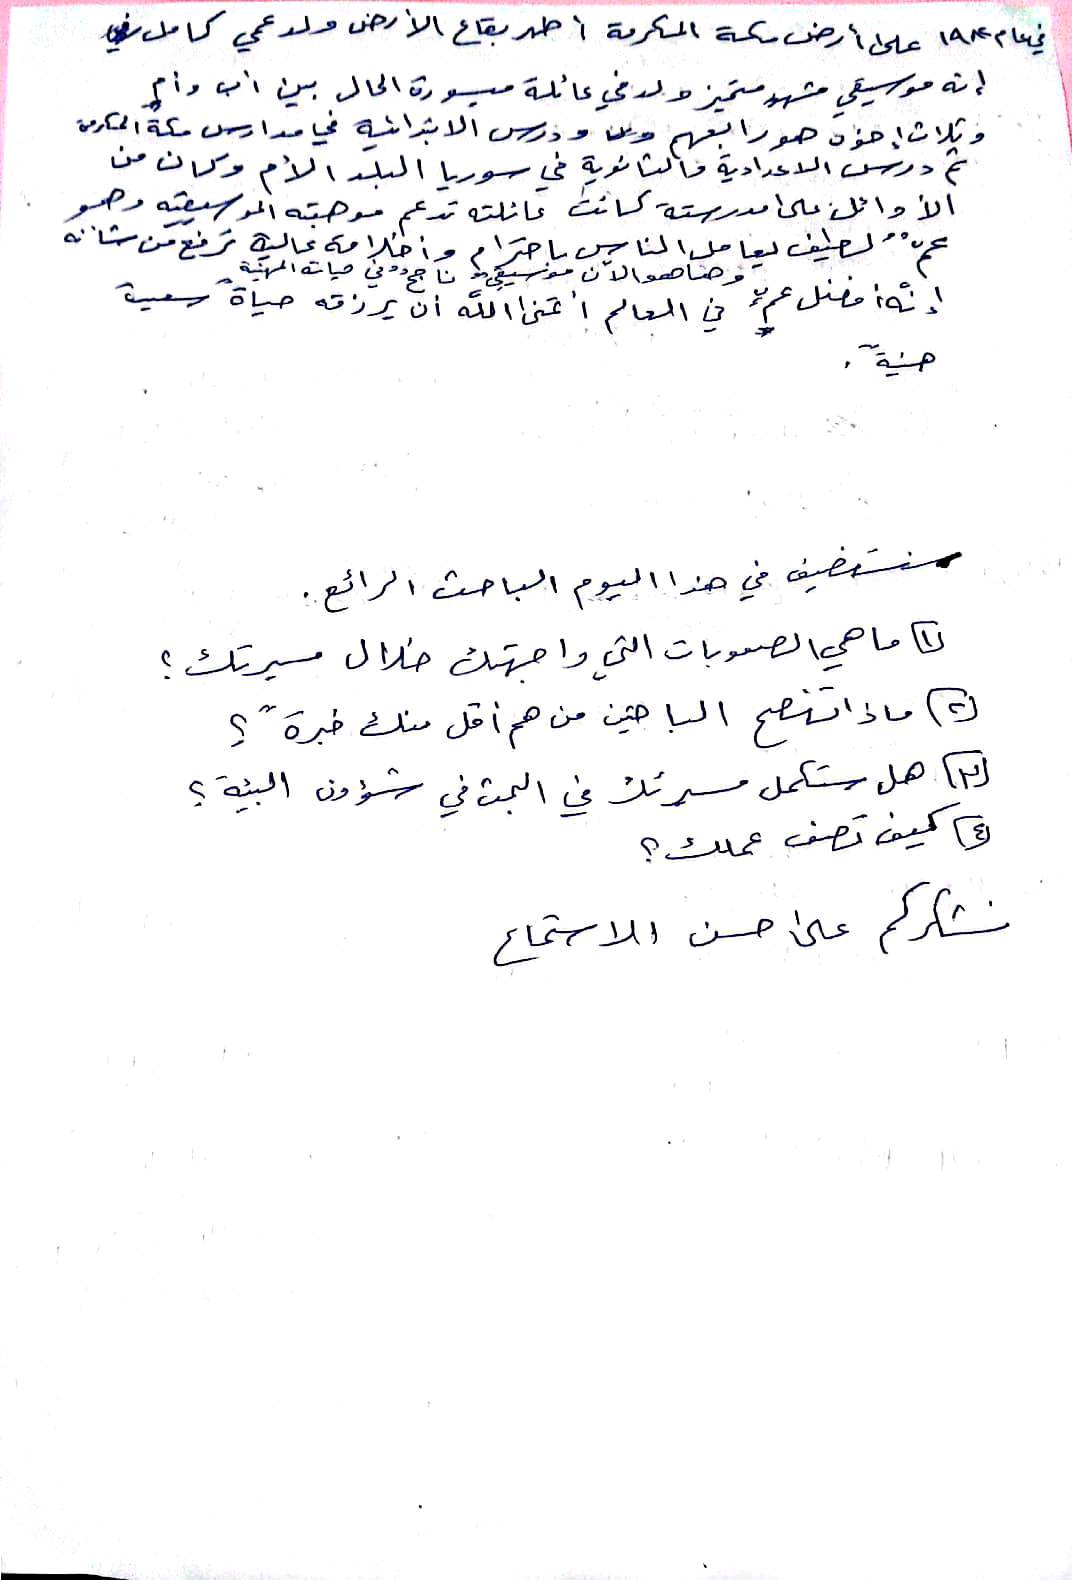 في عام ١٩٨٤ على أرض مكة المكرمة أطهر بقاع الأرض ولد عمي كامل
إنه موسيقي مشهور متميز ولد في عائلة ميسورة الحال بين أب وأمٍ
وثلاث إخوه هو رابعهم ودرس الابتدائية في مدارس مكةَ المكرمة
ثم درس الاعدادية والثانوية في سوريا البلد الأم وكان من
الأوائل على مدرسته كانت عائلته تدعم موهبته الموسيقيه وهو
عمٌ لطيف يعامل الناس باحترام وأخلاقه عالية ترفع من شأنه
وها هو الآن موسيقيٌ ناجحٌ في حياته المهنية
إنَّه أفضل عمٍ في العالم أتمنى اللَّه أن يرزقه حياةً سعيدةً
هنيةً .
سنستضيف في هذا اليوم الباحث الرائع .
١) ما هي الصعوبات التي واجهتك خلال مسيرتك ؟
٢) ماذا تنصح الباحثين من هم أقل منك خبرةً ؟
٣) هل ستكمل مسيرتك في البحث في شؤون البيئة ؟
٤) كيف تصف عملك ؟
نشكركم على حسن الاستماع